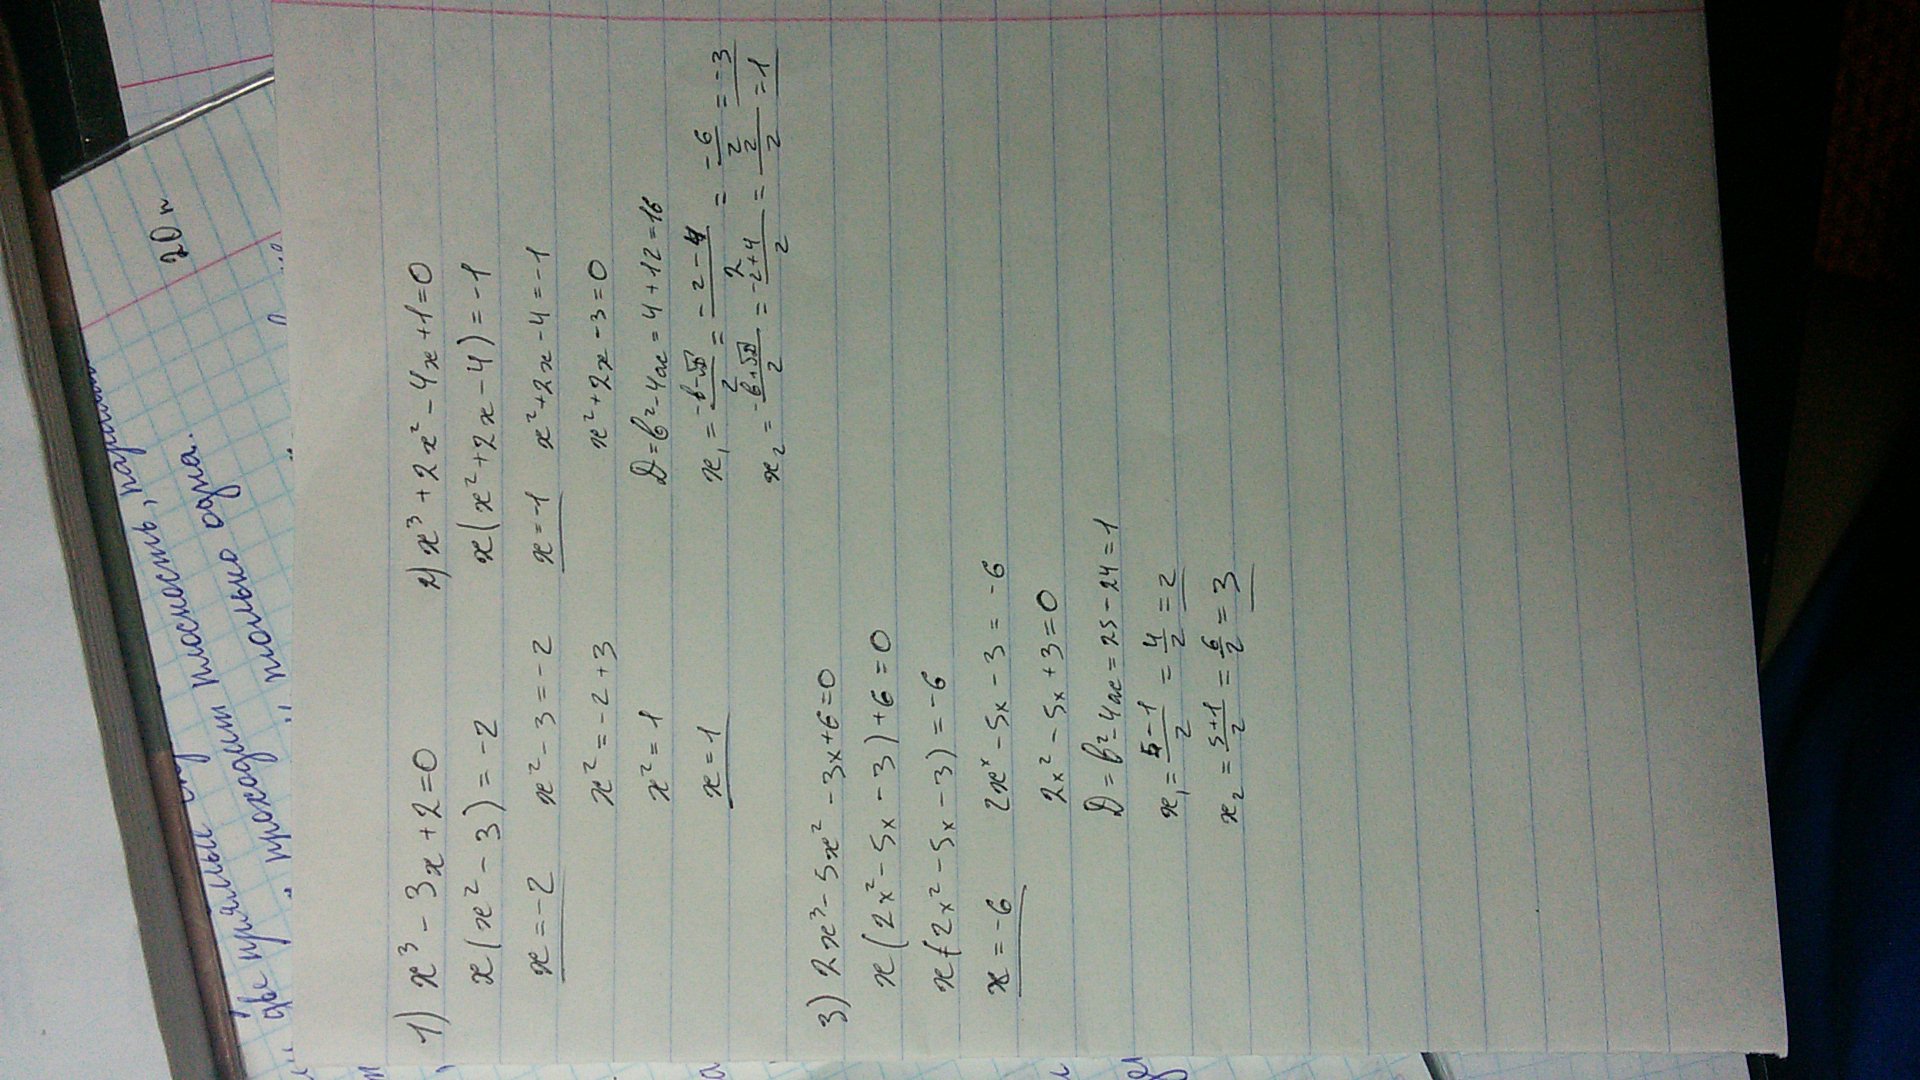 20 п
две прямые плоскость,
проходит только одна.
1) x³ - 3x + 2 = 0
x(x² - 3) = -2
x = -2 x² - 3 = -2
x² = -2 + 3
x² = 1
x = 1
2) x³ + 2x² - 4x + 1 = 0
x(x² + 2x - 4) = -1
x = -1 x² + 2x - 4 = -1
x² + 2x - 3 = 0
D = b² - 4ac = 4 + 12 = 16
x₁ = (-b - √D)/2 = (-2 - 4)/2 = -6/2 = -3
x₂ = (-b + √D)/2 = (-2 + 4)/2 = 2/2 = 1
3) 2x³ - 5x² - 3x + 6 = 0
x(2x² - 5x - 3) + 6 = 0
x(2x² - 5x - 3) = -6
x = -6 2xˣ - 5x - 3 = -6
2x² - 5x + 3 = 0
D = b² - 4ac = 25 - 24 = 1
x₁ = (5 - 1)/2 = 4/2 = 2
x₂ = (5 + 1)/2 = 6/2 = 3